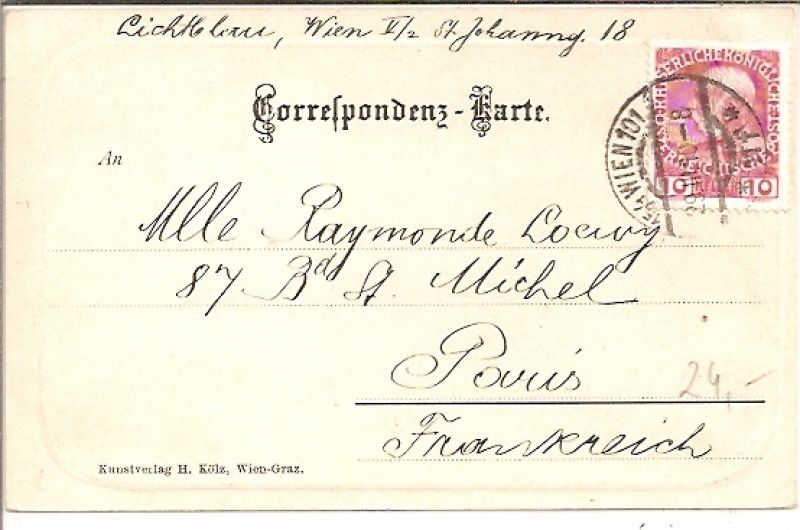 Lichtblau, Wien II/2 St Johanng. 18
Correspondenz-Karte.
An
WIEN 101
10 10
Mlle Raymonde Loewy
87 Bd St. Michel
Paris
24,-
Frankreich
Kunstverlag H. Kölz, Wien-Graz.